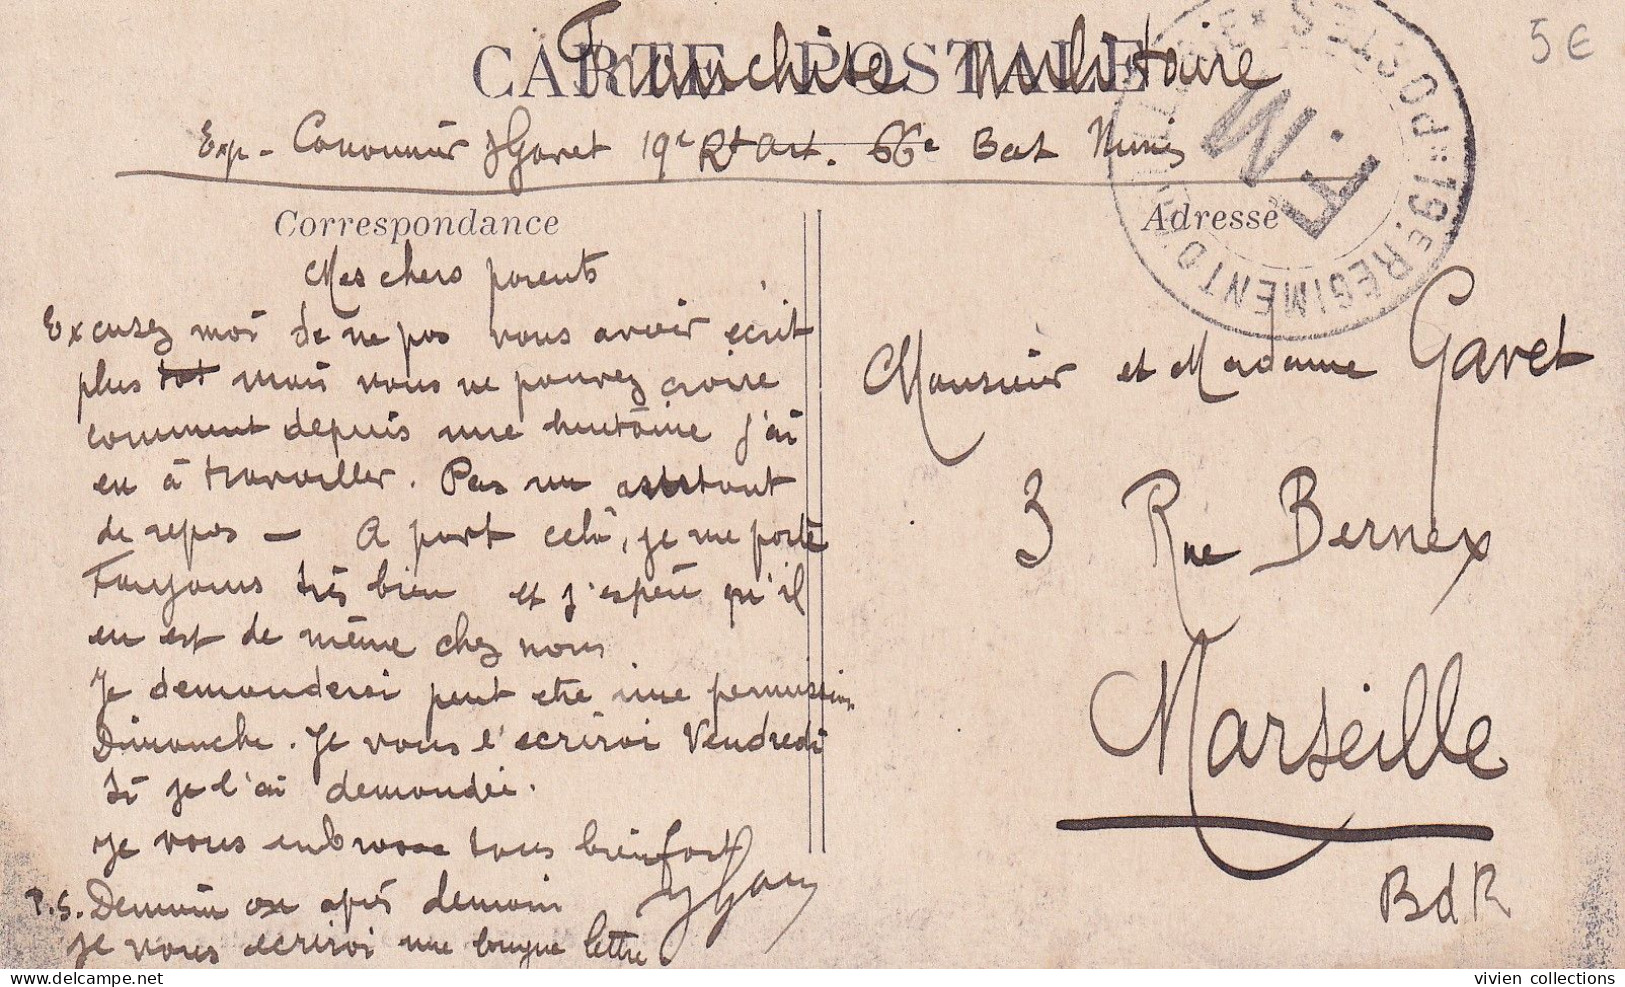 5€
CARTE POSTALE
Franchise militaire
Exp - Canonnier J Garet 19e Rt Art. 66e Bat Nimes
Correspondance
Adresse
* POSTES * 19e REGIMENT D'ARTILLERIE
F.M
Mes chers parents
Excusez moi de ne pas vous avoir écrit
plus tot mais vous ne pouvez croire
comment depuis une huitaine j'ai
eu à travailler. Pas un instant
de repos - A part celà, je me porte
toujours très bien et j'espère qu'il
en est de même chez nous
Je demanderai peut etre une permission
Dimanche. Je vous l'ecrirai Vendredi
si je l'ai demandée.
Je vous embrasse tous bien fort
J Garet
P.S. Demain ou après demain
je vous ecrirai une longue lettre
Monsieur et Madame Garet
3 Rue Bernex
Marseille
BdR
vivien collections